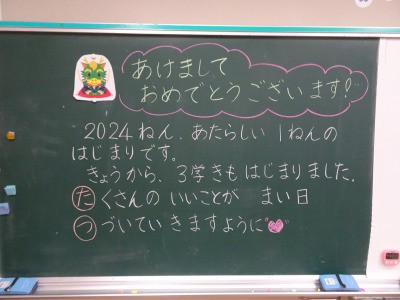 あけまして
おめでとうございます!
2024ねん、あたらしい1ねんの
はじまりです。
きょうから、3学きもはじまりました。
たくさんの いいことが まい日
つづいていきますように